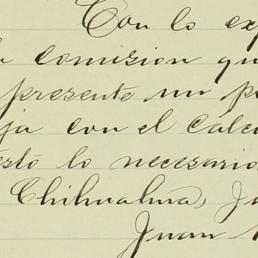 Con lo exp
a comision qu
presente un p
ja con el Calcu
esto lo necesario
Chihuahua, Ju
Juan